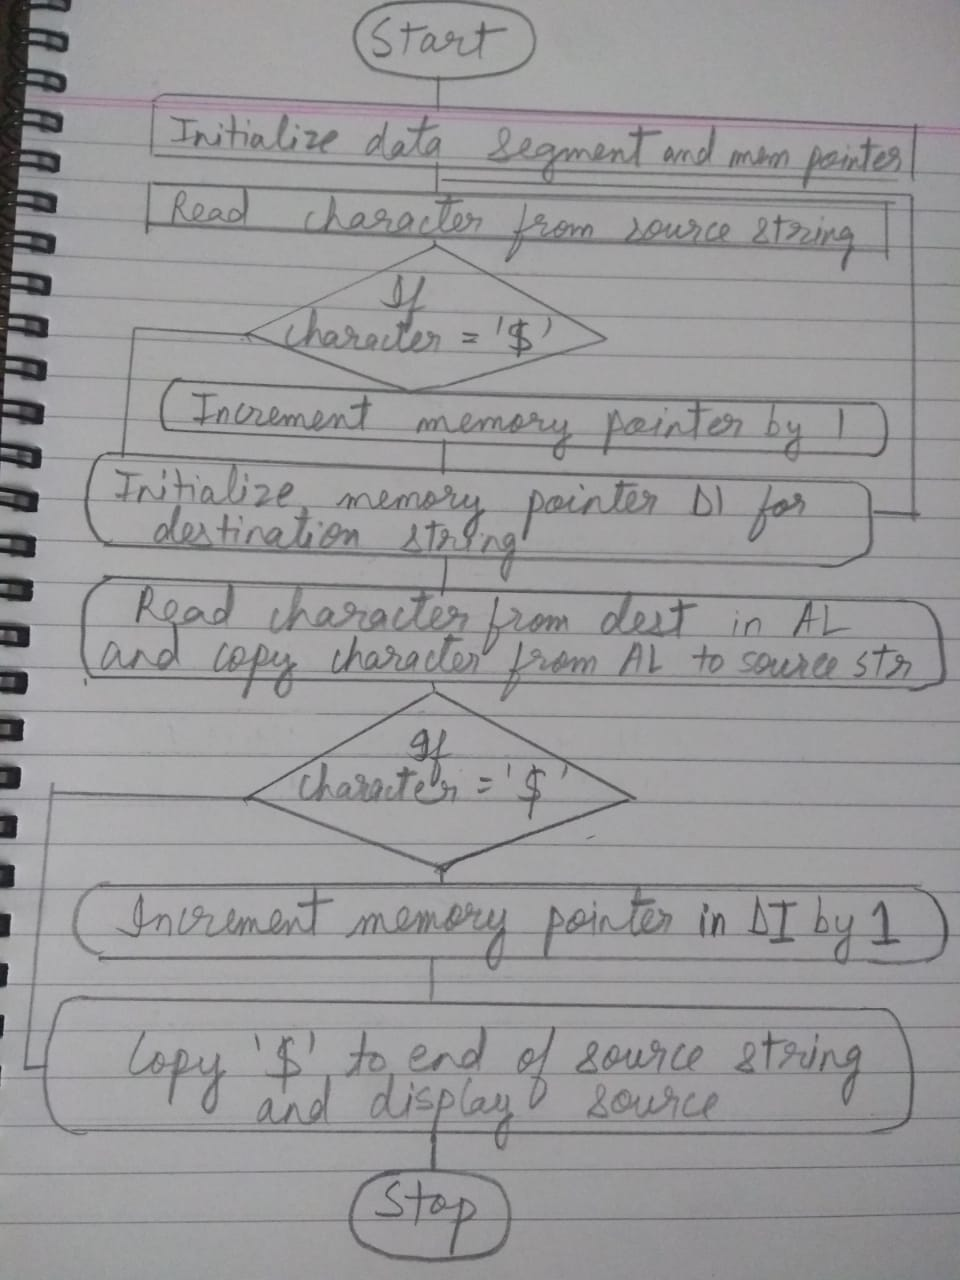 Start
Initialize data segment and mem pointer
Read character from source string
If
character = '$'
Increment memory pointer by 1
Initialize memory pointer DI for
destination string
Read character from dest in AL
and copy character from AL to source str
If
character = '$'
Increment memory pointer in DI by 1
Copy '$' to end of source string
and display source
Stop